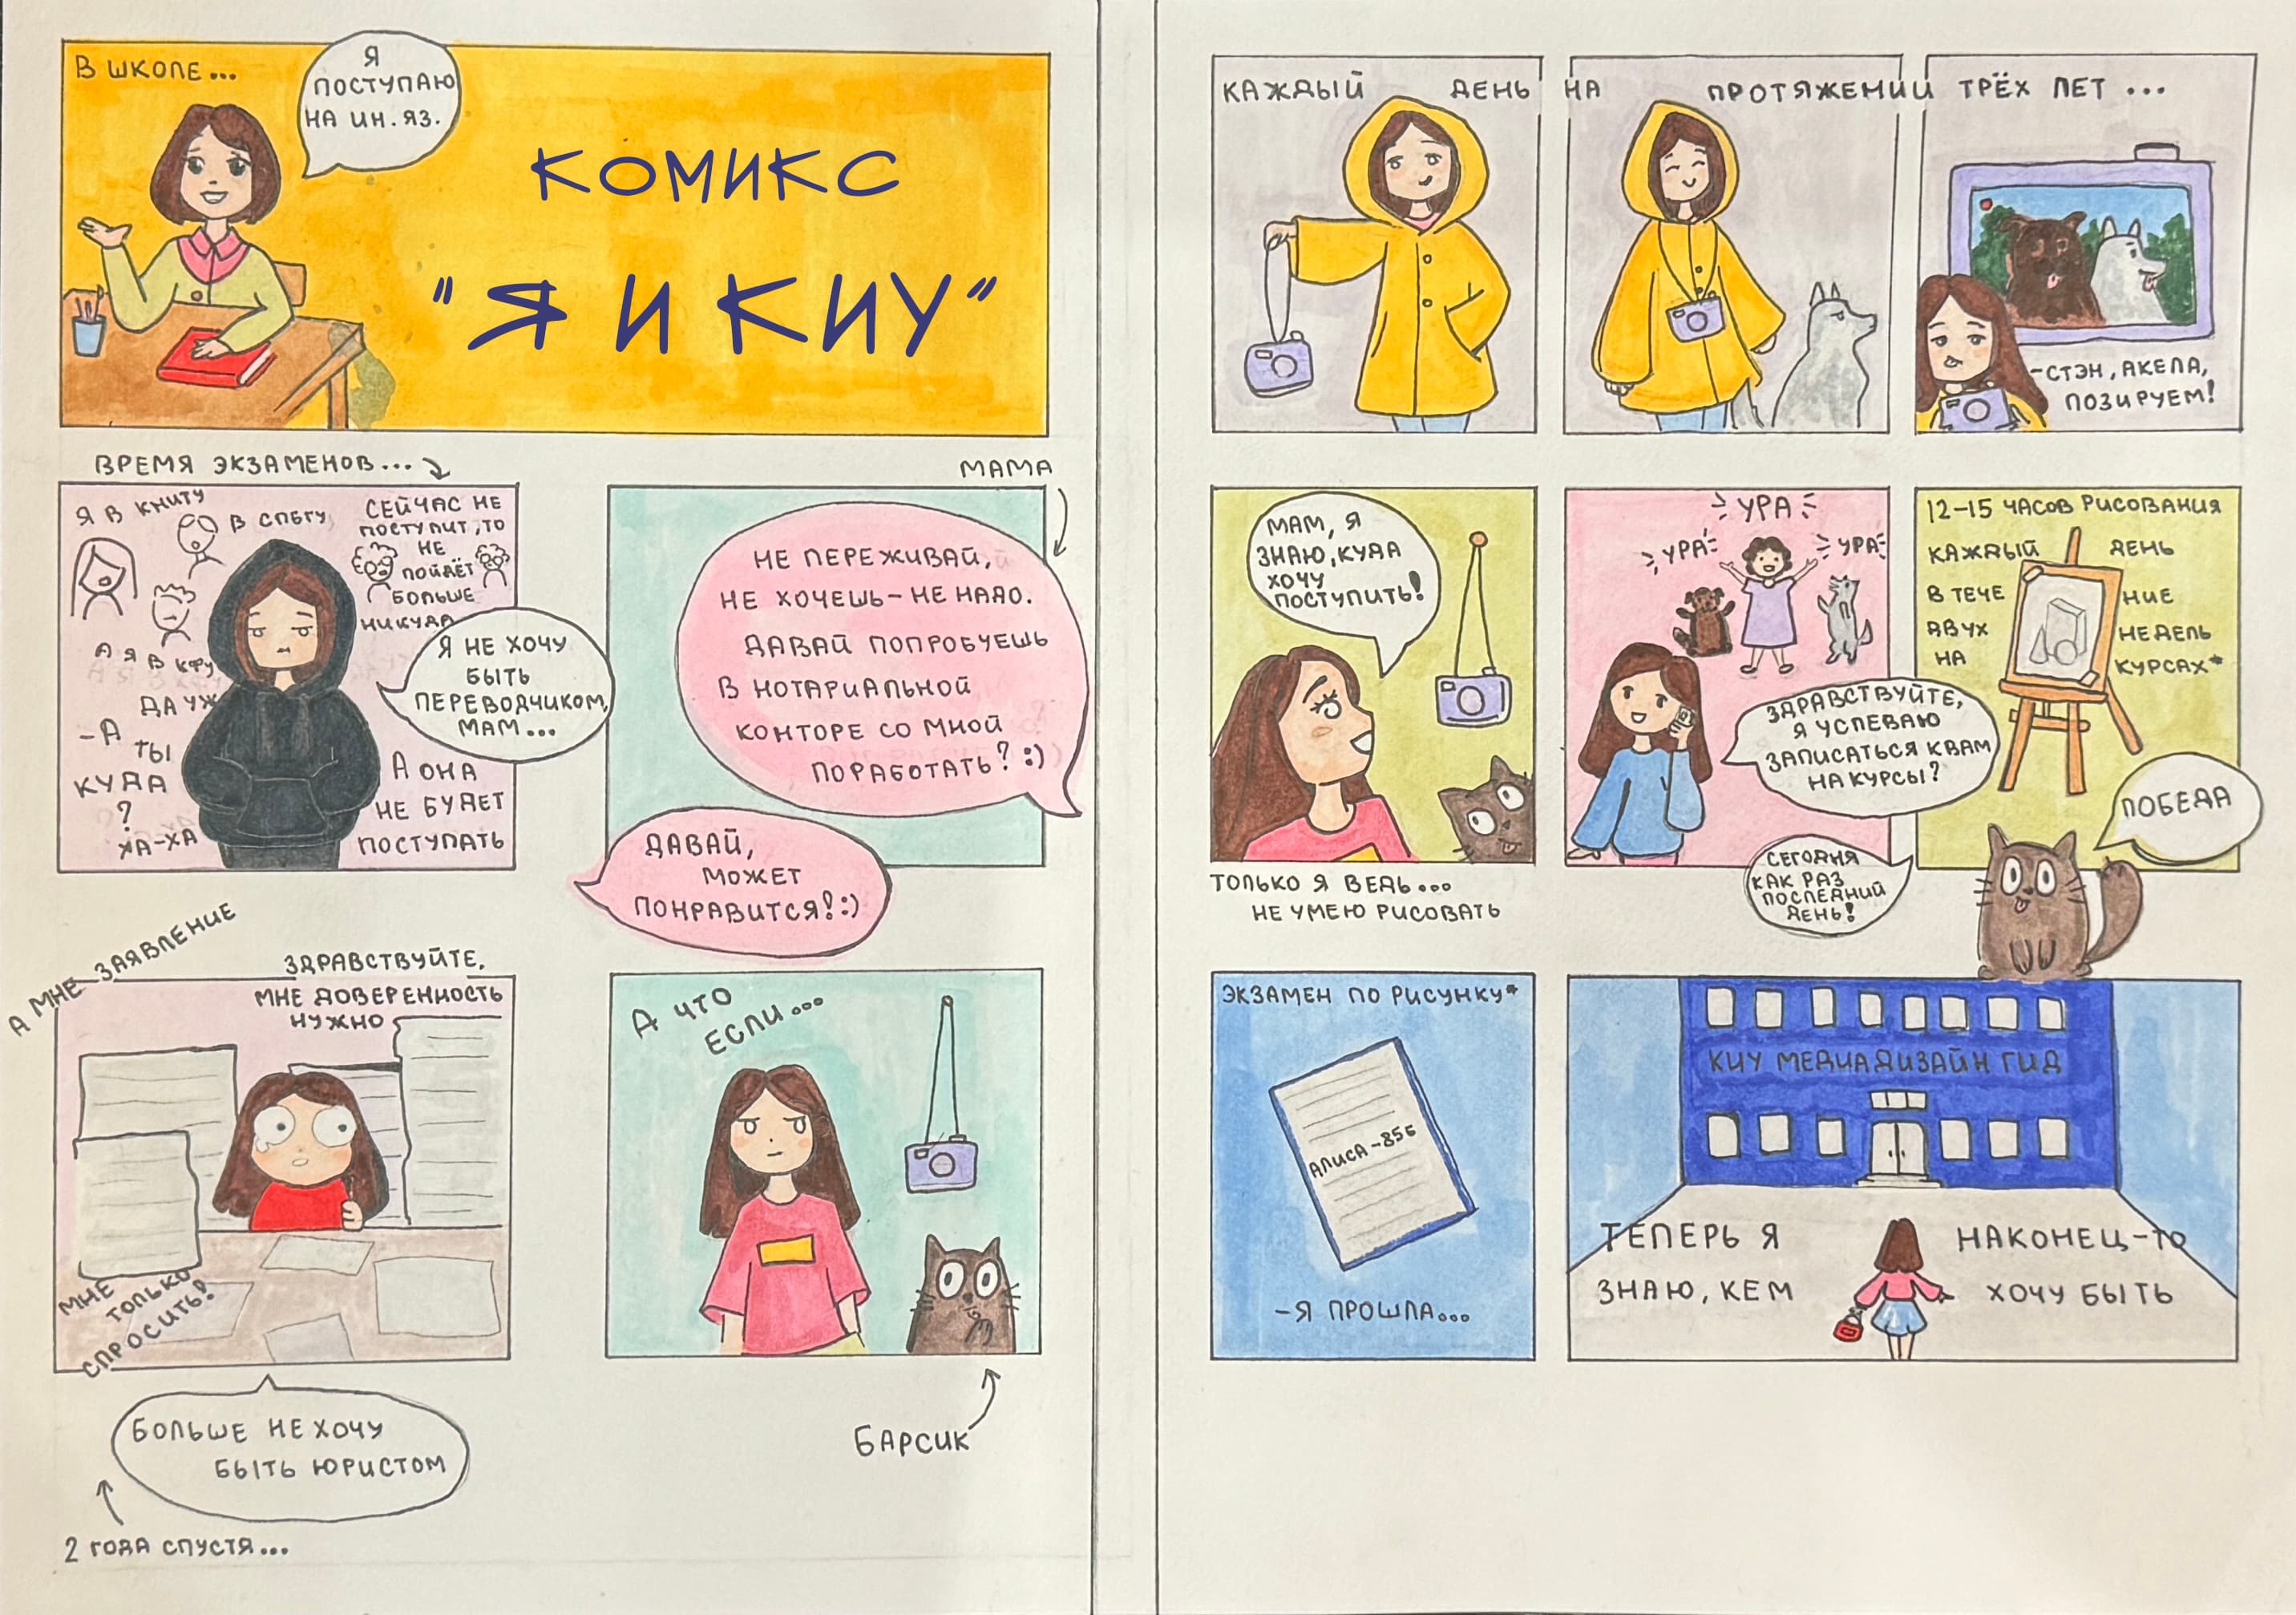 В ШКОЛЕ...
Я
ПОСТУПАЮ
НА ИН. ЯЗ.
КОМИКС
"Я И КИУ"
ВРЕМЯ ЭКЗАМЕНОВ...
Я В КНИТУ
В СПБГУ
СЕЙЧАС НЕ
ПОСТУПИТ, ТО
НЕ
ПОЙДЁТ
БОЛЬШЕ
НИКУДА
А Я В КФУ
ДА УЖ
-А
ТЫ
КУДА
?
ХА-ХА
Я НЕ ХОЧУ
БЫТЬ
ПЕРЕВОДЧИКОМ,
МАМ...
А ОНА
НЕ БУДЕТ
ПОСТУПАТЬ
МАМА
НЕ ПЕРЕЖИВАЙ,
НЕ ХОЧЕШЬ-НЕ НАДО.
ДАВАЙ ПОПРОБУЕШЬ
В НОТАРИАЛЬНОЙ
КОНТОРЕ СО МНОЙ
ПОРАБОТАТЬ? :)
ДАВАЙ,
МОЖЕТ
ПОНРАВИТСЯ! :)
А МНЕ ЗАЯВЛЕНИЕ
ЗДРАВСТВУЙТЕ,
МНЕ ДОВЕРЕННОСТЬ
НУЖНО
МНЕ
ТОЛЬКО
СПРОСИТЬ!
БОЛЬШЕ НЕ ХОЧУ
БЫТЬ ЮРИСТОМ
2 ГОДА СПУСТЯ...
А ЧТО
ЕСЛИ...
БАРСИК
КАЖДЫЙ ДЕНЬ НА ПРОТЯЖЕНИИ ТРЁХ ЛЕТ...
-СТЭН, АКЕЛА,
ПОЗИРУЕМ!
МАМ, Я
ЗНАЮ, КУДА
ХОЧУ
ПОСТУПИТЬ!
ТОЛЬКО Я ВЕДЬ...
НЕ УМЕЮ РИСОВАТЬ
УРА
УРА
УРА
ЗДРАВСТВУЙТЕ,
Я УСПЕВАЮ
ЗАПИСАТЬСЯ К ВАМ
НА КУРСЫ?
СЕГОДНЯ
КАК РАЗ
ПОСЛЕДНИЙ
ДЕНЬ!
12-15 ЧАСОВ РИСОВАНИЯ
КАЖДЫЙ ДЕНЬ
В ТЕЧЕ НИЕ
ДВУХ НЕДЕЛЬ
НА КУРСАХ*
ПОБЕДА
ЭКЗАМЕН ПО РИСУНКУ*
АЛИСА-85Б
-Я ПРОШЛА...
КИУ МЕДИАДИЗАЙН ГИД
ТЕПЕРЬ Я НАКОНЕЦ-ТО
ЗНАЮ, КЕМ ХОЧУ БЫТЬ